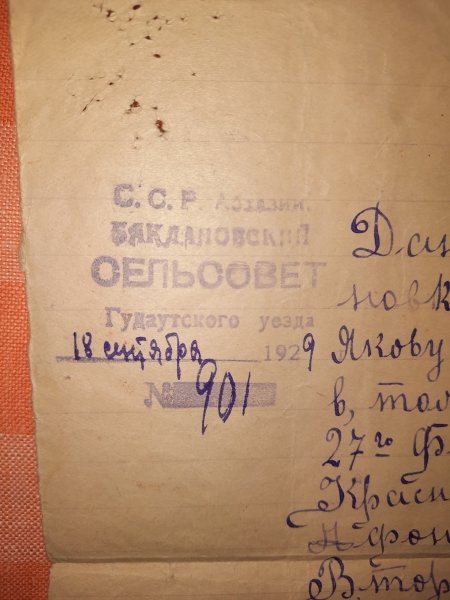 С. С. Р. Абхазии.
БАКЛАНОВСКИЙ
СЕЛЬСОВЕТ
Гудаутского уезда
18 сентября 1929
№ 901
Дан
новк
Якову
в, то
27го Ф
Красн
фрон
Втор